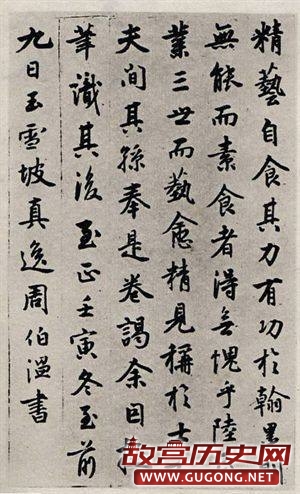 精藝自食其力有功於翰墨
無能而素食者得無愧乎陸
業三世而藝愈精見稱於士
夫間其孫奉是卷謁余因
筆識其後至正壬寅冬至前
九日玉雪坡真逸周伯溫書
故宫历史网
WWW.GUGONG.NET